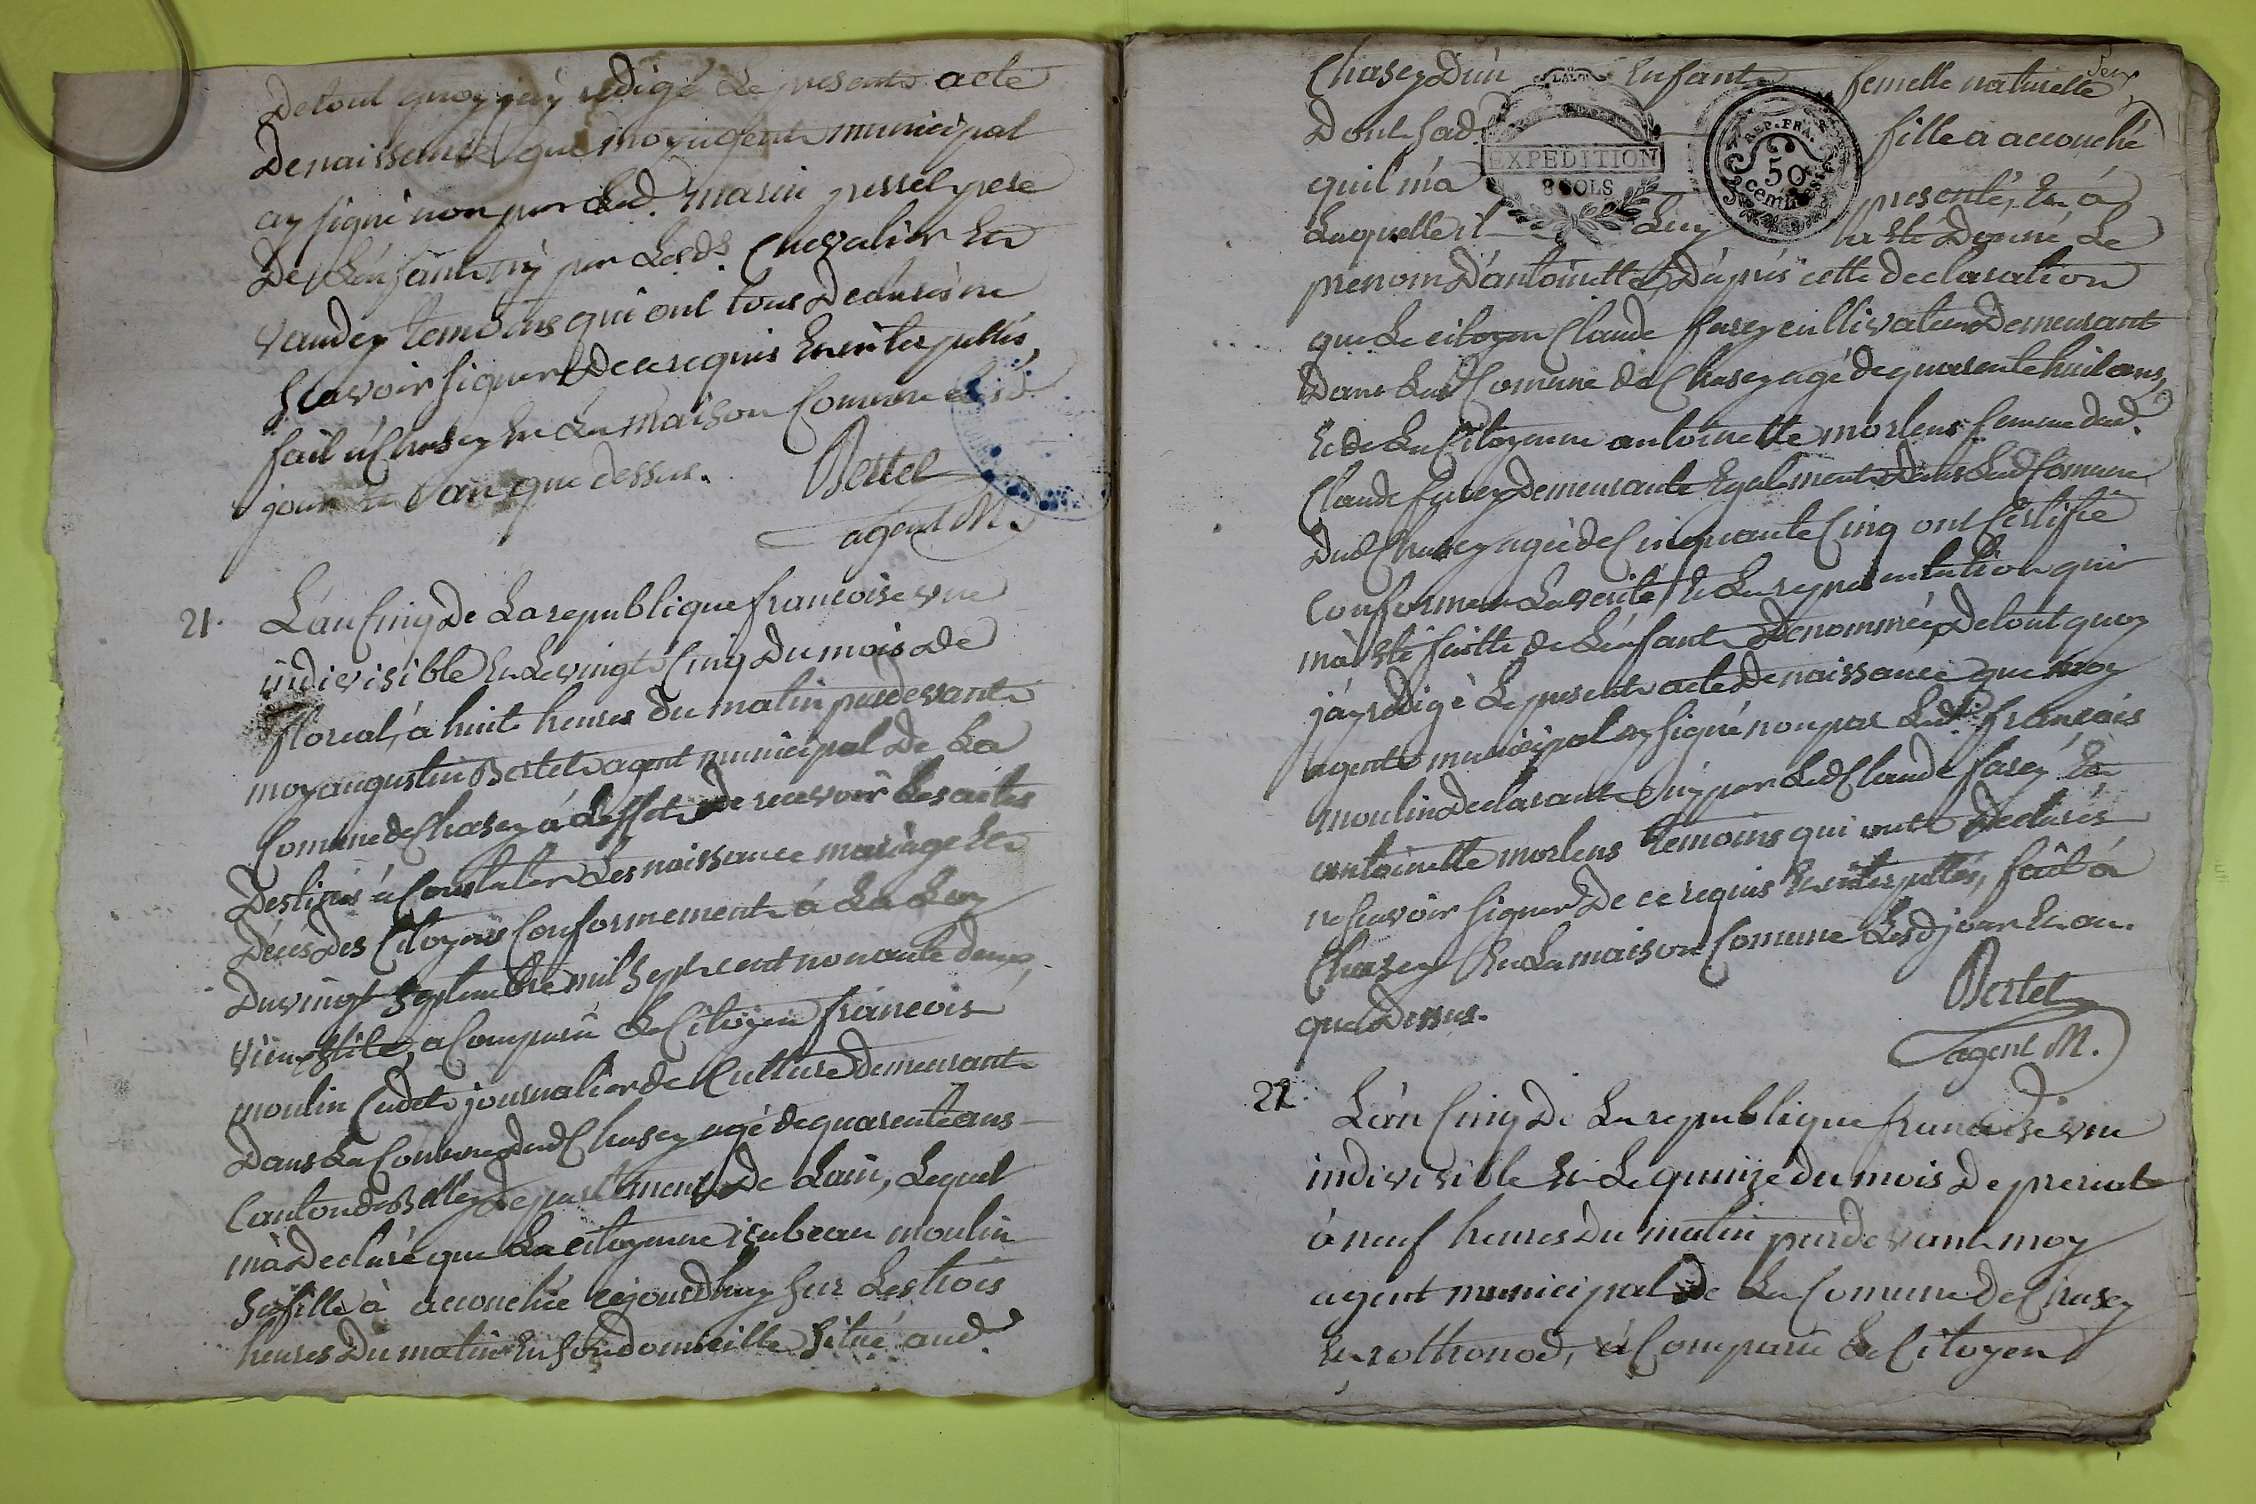 De tout quoy j'ay redigé Le presents acte
De naissance que moy agent municipal
ay signé non par Led. marin perret pere
De L'enfant ny par Lesds. Chevalier Et
vaudey temoins qui ont tous Declarés ne
scavoir signer De ce requis Et interpellés,
fait à Chasey En La maison Comune Lesd.
jour Et an que dessus.
Bertet
agent M.
21. L'an Cinq De La republique francoise une
indivisible Et Le vingt Cinq Du mois De
floreal, à huit heures du matin pardevant
moy augustin Bertet agent municipal De La
Comune de Chasey à L'effet de recevoir Les actes
Destinés à Constater Les naissance mariage Et
Décès Des Citoyens Conformement à La Loy
Du vingt septembre mil sept cent nonante deux,
vieux stile, a Comparu Le Citoyen francois
moulin Cadet journalier de Culture Demeurant
Dans La Comune Dud Chasey agé de quarente ans
Canton de Belley Departement De Lain, Lequel
m'à Declaré que La citoyenne isabeau moulin
sa fille à accouchée cejourdhuy sur Les trois
heures Du matin En son domicille situé aud.
Chasey D'un Enfant femelle naturelle
Dont sad. fille a accouché
EXPEDITION
8 SOLS
REP. FRA.
50
CENTIMES
qu'il m'a presenté, Et à
Laquelle il Luy a Eté Donné Le
prenom D'antoinette D'après cette declaration
que Le citoyen Claude fusey cultivateur Demeurant
Dans Lad Comune de Chasey agé de quarente huit ans,
Et de La Citoyenne antoinette morlens femme dud.
Claude fusey Demeurante Egalment Dans Lad Comune
Dud Chasey agée de Cinquante Cinq ont Certifié
Conforme a La verité Et La representation qui
m'à Eté faitte de L'enfant Denommée, De tout quoy
j'ay redigé Le present acte De naissance que moy
agent municipal ay signé non par Led. françois
moulin Declarant ny par Led Claude fusey Et
antoinette morlens temoins qui ont Declarés
ne scavoir signer De ce requis Et interpellés, fait à
Chasey En La maison Comune Lesd jour Et an.
que Dessus.
Bertet
agent M.
22. L'an Cinq De La republique francoise une
indivisible Et Le quinze du mois De prerial
à neuf heures Du matin pardevant moy
agent municipal de La Comune De Chasey
Et rothonod, à Comparu Le Citoyen